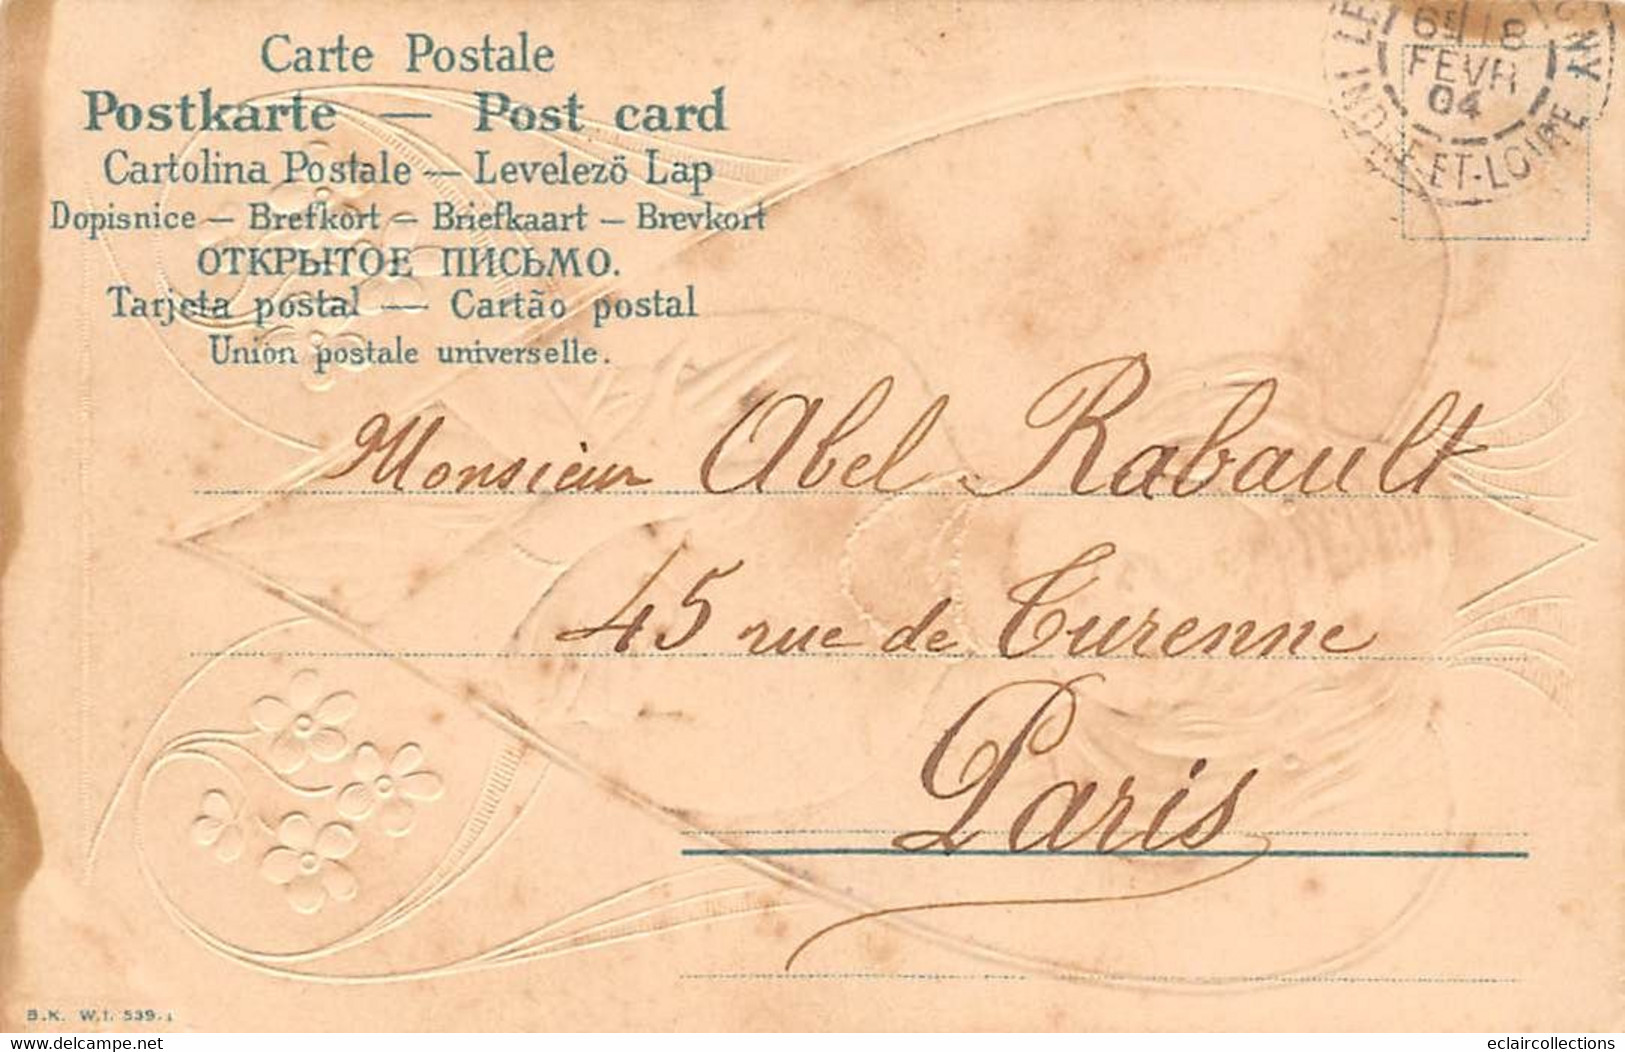 Carte Postale
Postkarte — Post card
Cartolina Postale — Levelező Lap
Dopisnice — Brefkort — Briefkaart — Brevkort
ОТКРЫТОЕ ПИСЬМО.
Tarjeta postal — Cartão postal
Union postale universelle.
6E 18
FEVR
04
INDRE-ET-LOIRE
Monsieur Abel Rabault
45 rue de Turenne
Paris
B.K. W.I. 539-1
eclaircollections